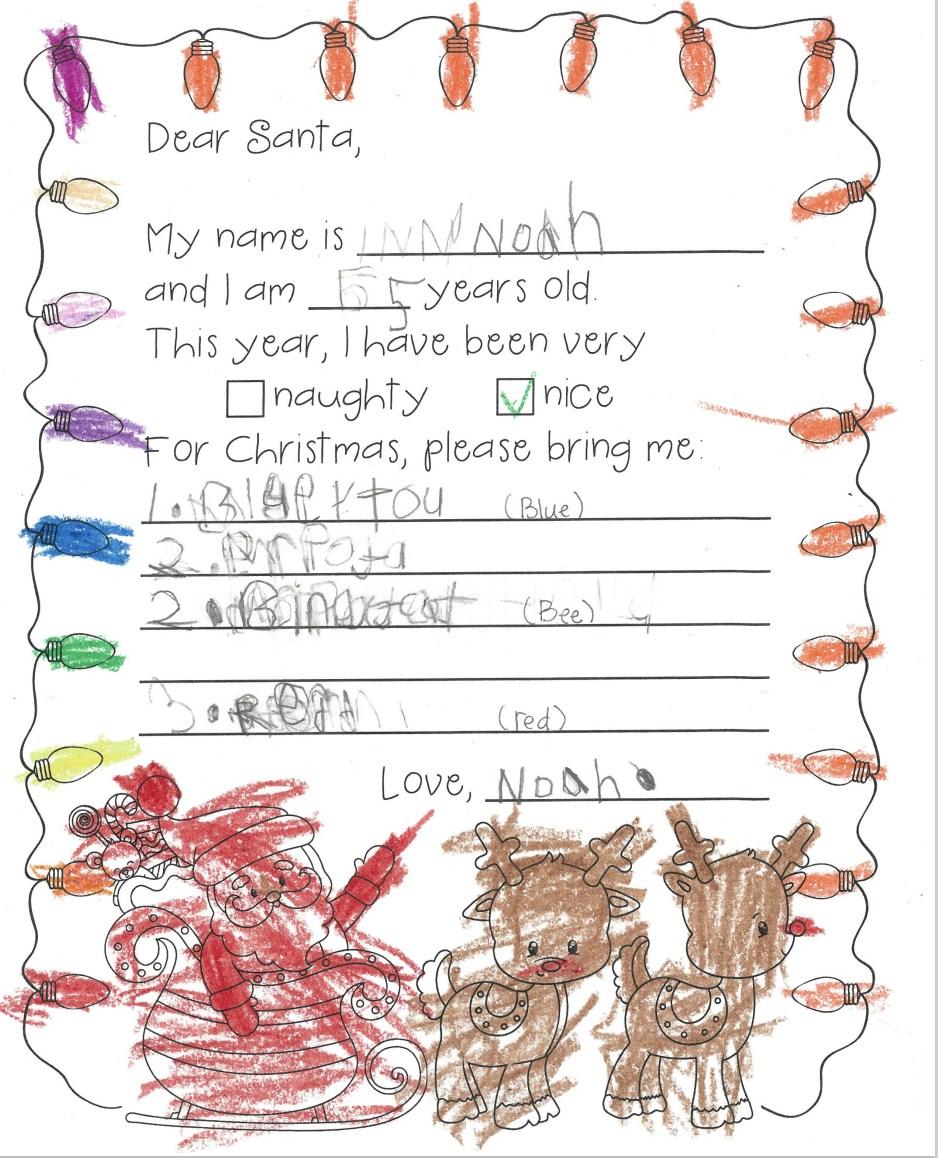 Dear Santa,
My name is Noah
and I am 5 years old.
This year, I have been very
naughty nice
For Christmas, please bring me:
1. (Blue)
2.
2. (Bee)
3. (red)
Love, Noah